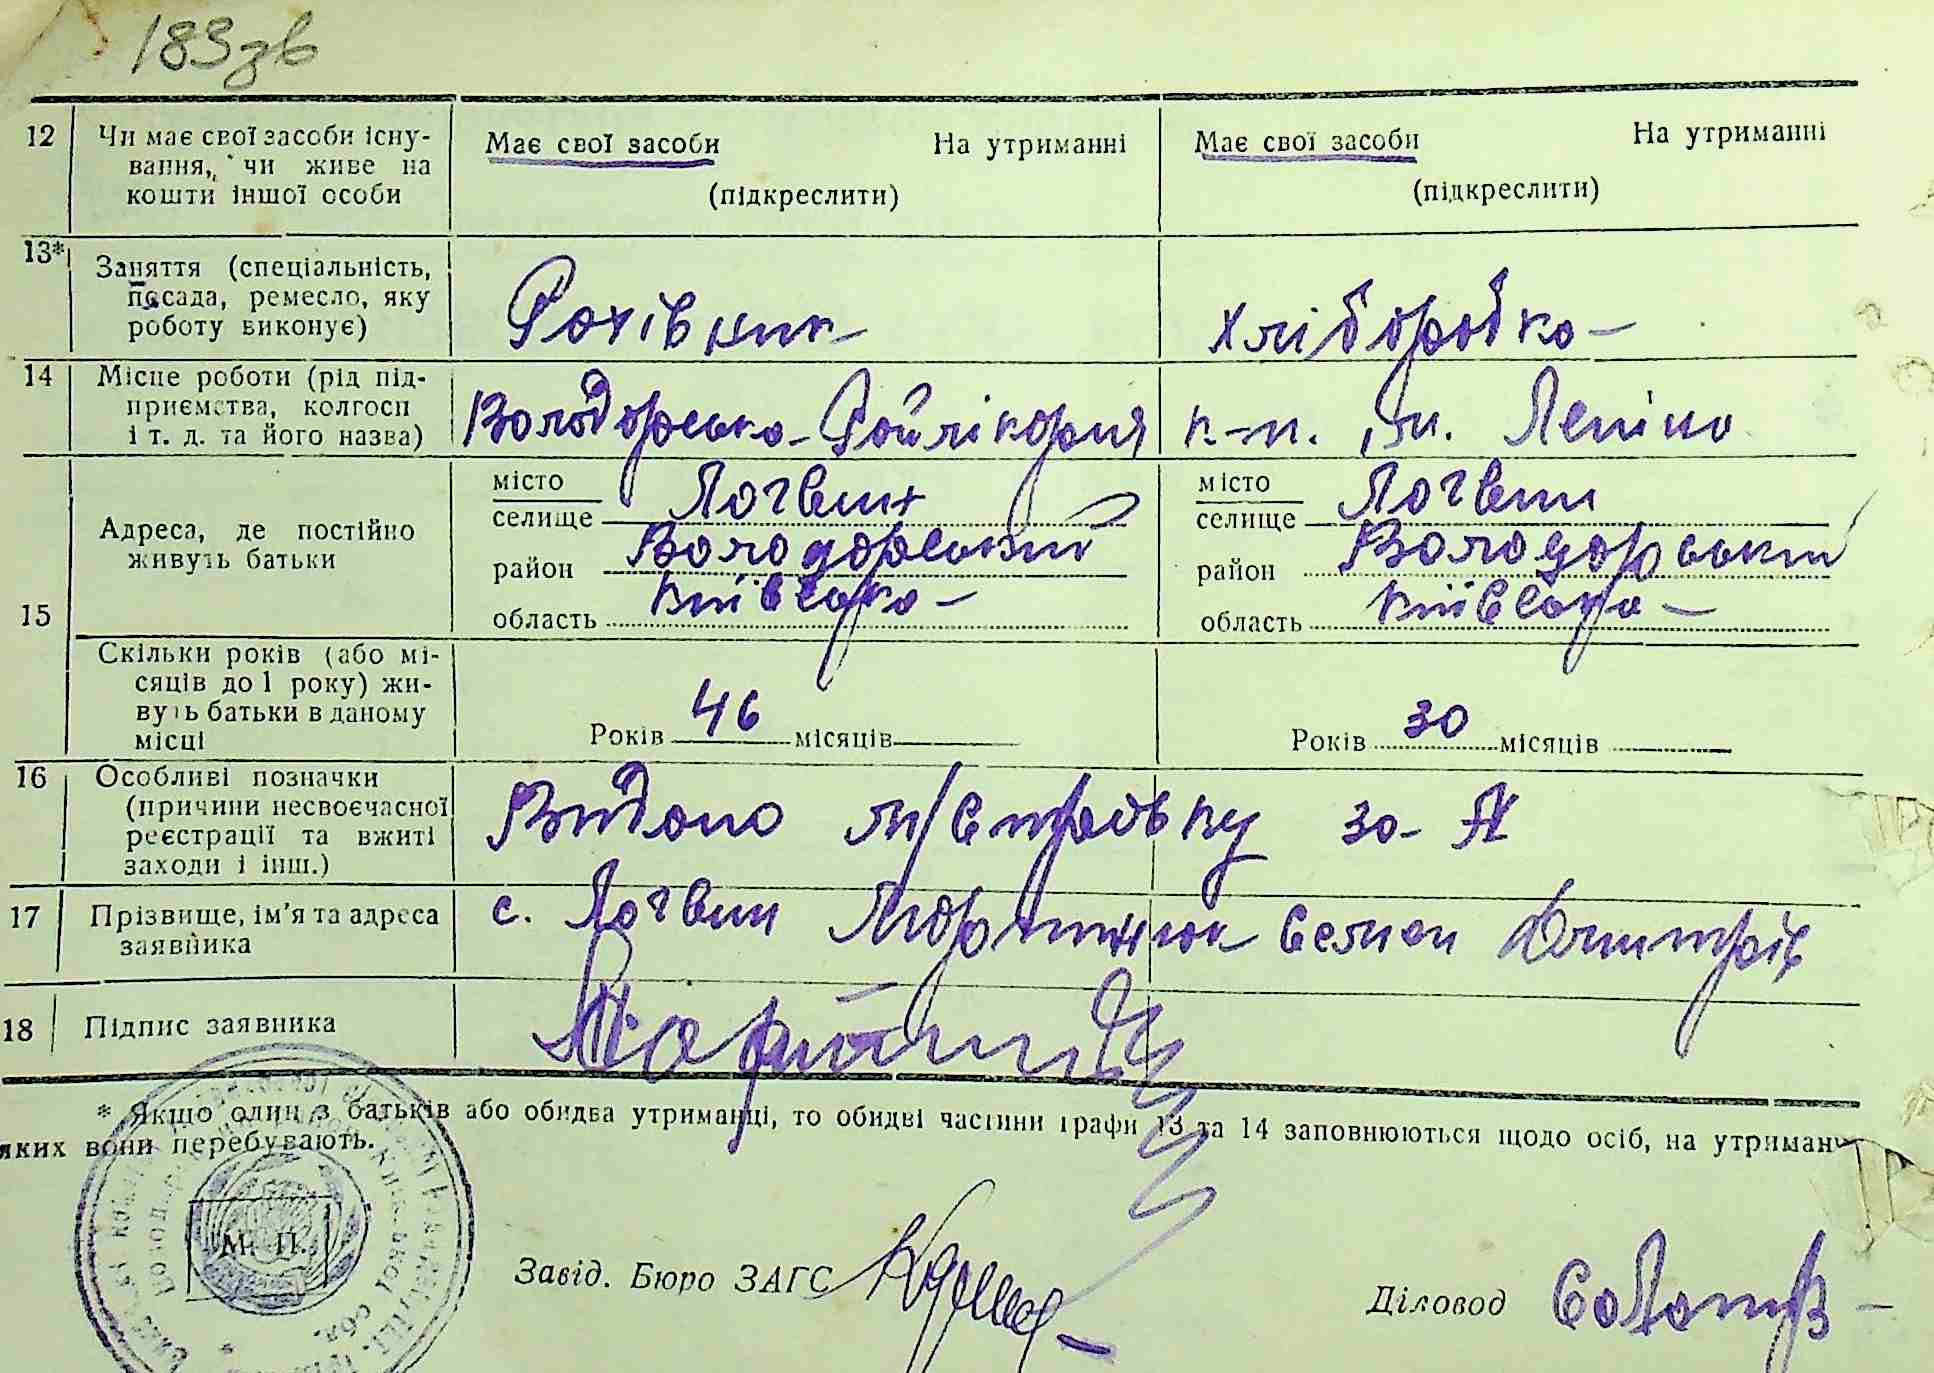 183зв
12 Чи має свої засоби існу-
вання, чи живе на
кошти іншої особи
Має свої засоби На утриманні
(підкреслити)
Має свої засоби На утриманні
(підкреслити)
13* Заняття (спеціальність,
посада, ремесло, яку
роботу виконує)
Рахівник
хлiборобка
14 Місце роботи (рід під-
приємства, колгосп
і т. д. та його назва)
Володарська Райлікарня
к-п. ім. Леніна
15 Адреса, де постійно
живуть батьки
місто
селище Логвин
район Володарський
область Київська
місто
селище Логвин
район Володарський
область Київська
Скільки років (або мі-
сяців до 1 року) жи-
вуть батьки в даному
місці
Років 46 місяців
Років 30 місяців
16 Особливі позначки
(причини несвоєчасної
реєстрації та вжиті
заходи і інш.)
Видано м/єтрабвку за №
17 Прізвище, ім'я та адреса
заявника
с. Логвин Мартинюк Семен Дмитрів
18 Підпис заявника
* Якщо один з батьків або обидва утриманці, то обидві частини графи 13 та 14 заповнюються щодо осіб, на утриман
яких вони перебувають.
М. П.
Завід. Бюро ЗАГС
Діловод